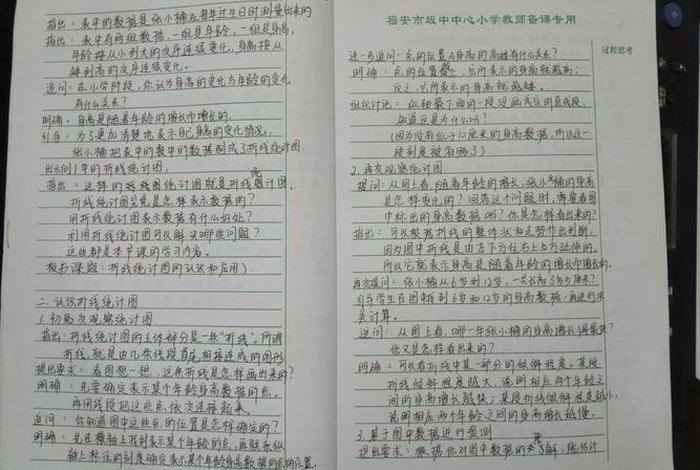 指出：表中的数据是张小楠在每年过生日时测量出来的
指出：表中有两组数据，一组是年龄，一组是身高，
年龄按从小到大的次序连续变化，身高按从
矮到高的次序连续变化。
追问：在小学阶段，你认为身高的变化与年龄的变化
有什么关系？
明确：身高是随着年龄的增长而增长的。
引导：为了更加清楚地表示自己身高的变化情况，
张小楠把表中的数据制成了折线统计图。
出示例1中的折线统计图。
指出：这样的折线图统计图就是折线统计图。
折线统计图究竟是怎样表示数据的？
用折线统计图表示数据有什么好处？
利用折线统计图可以解决哪些问题？
这些都是本节课的学习内容。
板书课题：折线统计图的认识和应用）
二、认识折线统计图
1.初步次观察统计图
指出：折线统计图的主体部分是一条“折线”。所谓
折线，就是由几条线段首尾相接连成的图形
提出要求：看图想一想，这条折线是怎样画出来的？
明确：先要确定表示某个年龄身高数据的点，
再用线段把这些点依次连接起来。
追问：你知道图中这些点的位置是怎样确定的？
明确：先在横轴上找到表示某个年龄的点，再联系纵
轴上标注的刻度确定表示某个年龄身高数据的点的位置.
福安市坂中中心小学教师备课专用
过程思考
进一步追问：点的位置与身高的高矮有什么关系？
明确：点的位置越高，它所表示的身高就越高；
反之，它所表示的身高就越矮。
组织讨论：纵轴最下面的一段没画成实的直线段，
知道这是为什么吗？
(因为没有低于110厘米的身高数据，所以这一
段刻度被省略了）
2.再次观察统计图
提问：从图上看，随着年龄的增长，张小楠的身高
是怎样变化的？回答这个问题时，需要看图
中标出的身高数据吗？你是怎样看出来的？
指出：可以根据折线的整体状和走势作出判断，
因为图中折线是由左下方往右上方延伸的。
所以它就表示身高是随着年龄的增长而增长的。
再次提问：张小楠从6岁到12岁，一共长高了多少厘米？
引导学生在图中找到6岁和12岁的身高数据，再进行求
差计算。
追问：从图上看，哪一年张小楠的身高增长得最快？
你又是怎样看出来的？
明确：可以看折线中某一部分的倾斜程度。某段
折线倾斜程度越大，说明相应两个年龄之
间的身高增长越快；某段折线倾斜程度越小，
说明相应两个年龄之间的身高增长越慢。
3.基于图中数据进行预测
提出要求：根据你对图中数据的了解，估计